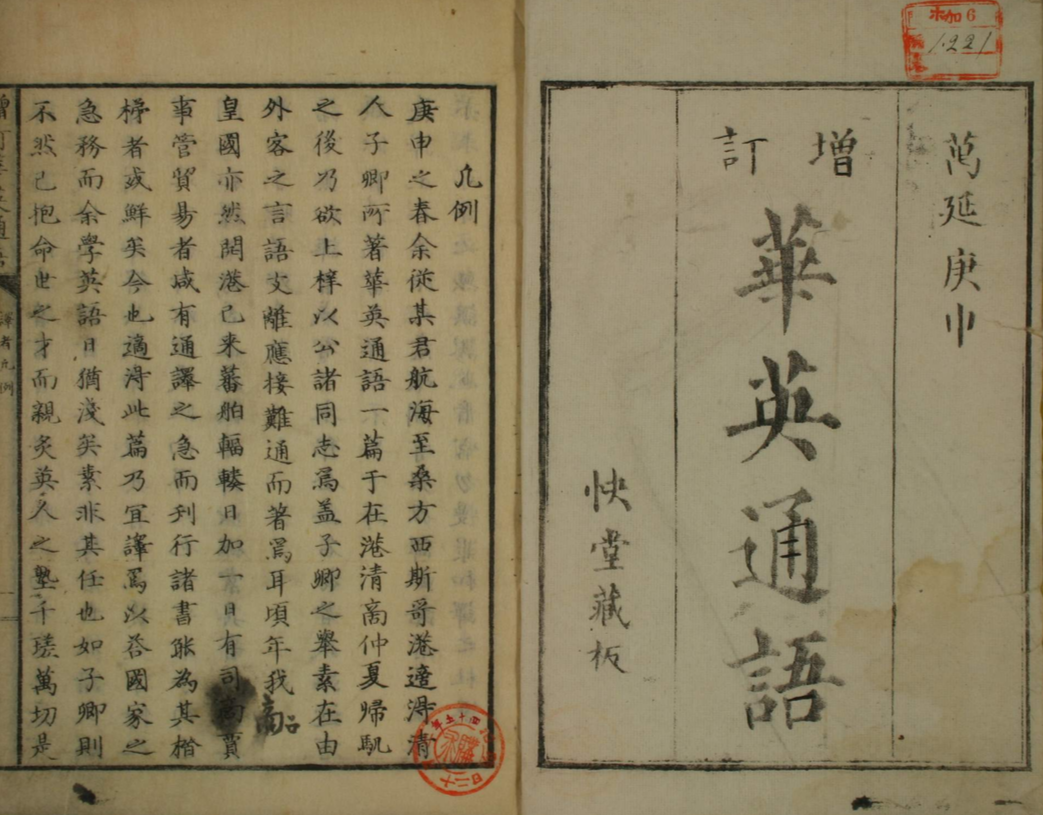 6
1.221
萬延庚申
增訂
華英通語
快堂藏板
凡例
庚申之春余從某君航海至桑方西斯哥港適得清
人子卿所著華英通語一篇于在港清商仲夏歸馭
之後乃欲上梓以公諸同志焉蓋子卿之舉素在由
外客之言語支離應接難通而著焉耳頃年我
皇國亦然開港已来蕃舶輻輳日加一日有司商賈
事管貿易者咸有通譯之急而刋行諸書能為其楷
梯者或鮮矣今也適得此篇乃冝譯焉以咨國家之
急務而余學英語日猶淺矣素非其任也如子卿則
不然已抱命世之才而親炙英人之塾千瑳萬切是
增訂華英通語
譯者凡例